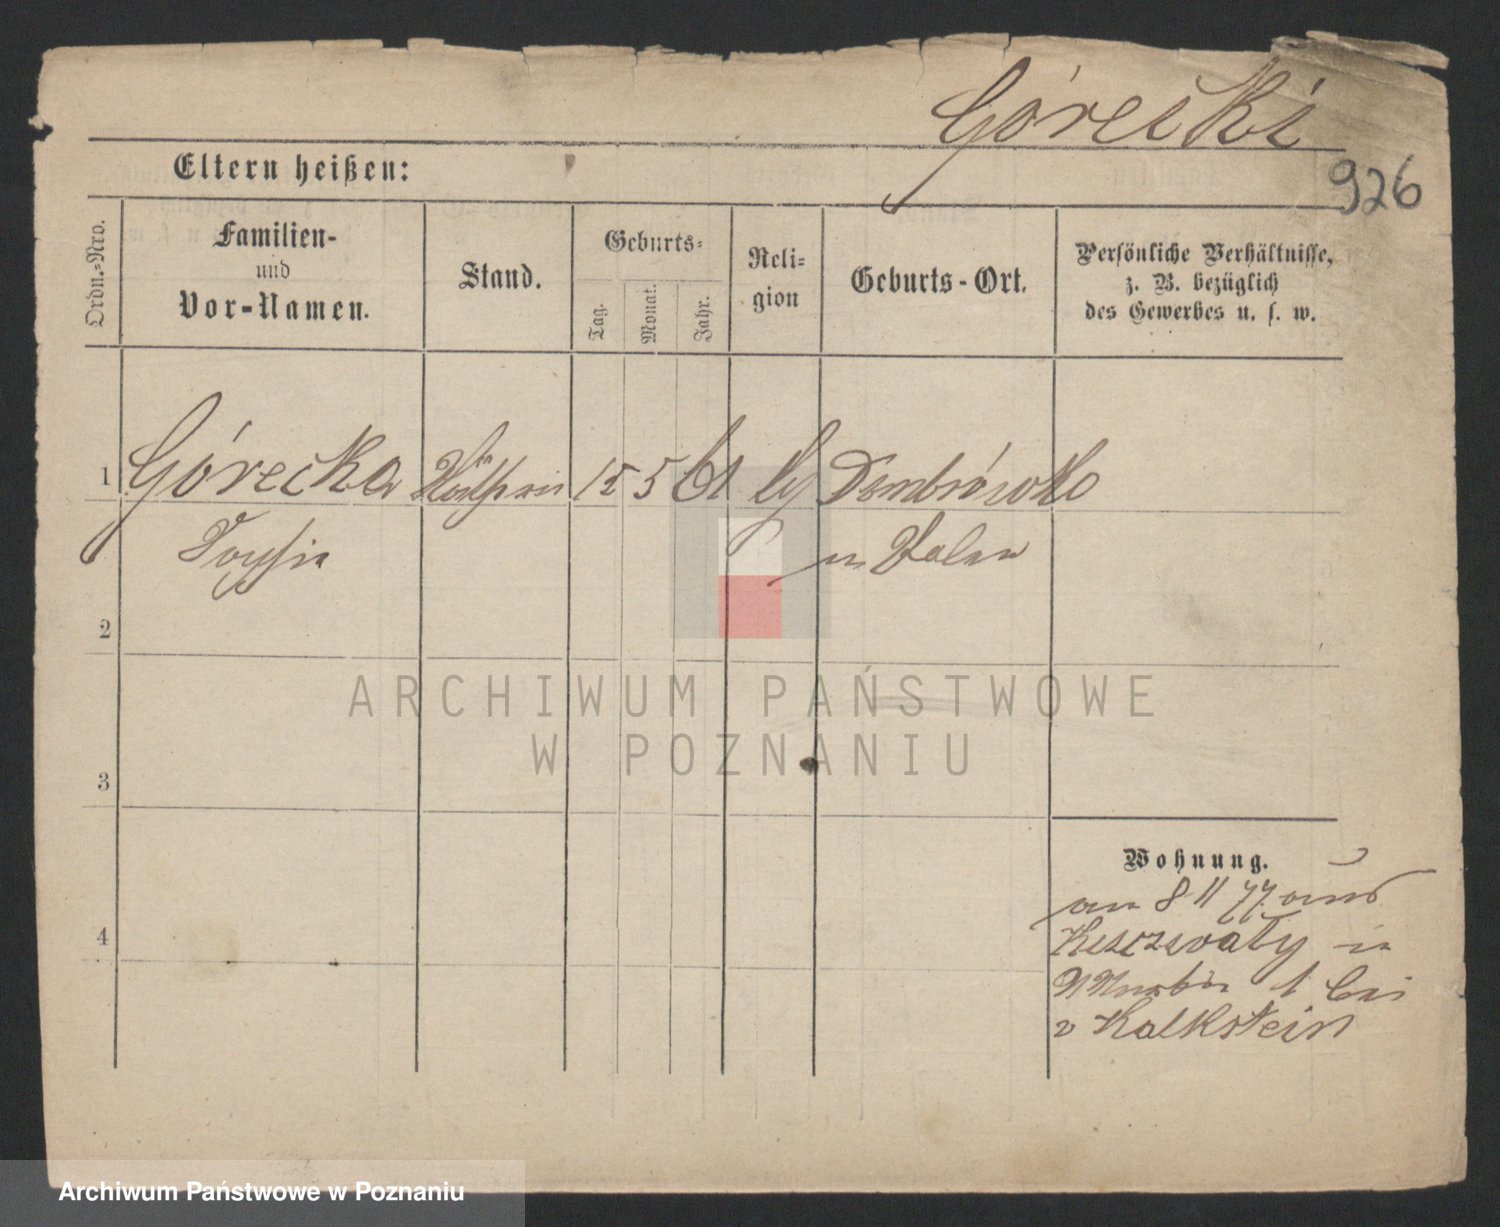 Górecki
926
Eltern heißen:
Ordn.-Nro.
Familien-
und
Vor-Namen.
Stand.
Geburts-
Tag.
Monat.
Jahr.
Reli-
gion
Geburts-Ort.
Persönliche Verhältnisse,
z. B. bezüglich
des Gewerbes u. s. w.
1 Górecka Köchin 15 5 61 Dombrówko
in Polen
2
3
4
Wohnung.
am 8 11 77 aus
in
1 bei
v Kalkstein
ARCHIWUM PAŃSTWOWE
W POZNANIU
Archiwum Państwowe w Poznaniu